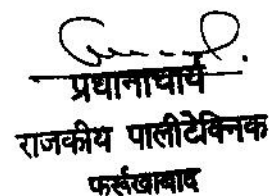 प्रधानाचार्य
राजकीय पालीटेक्निक
फर्रूखाबाद